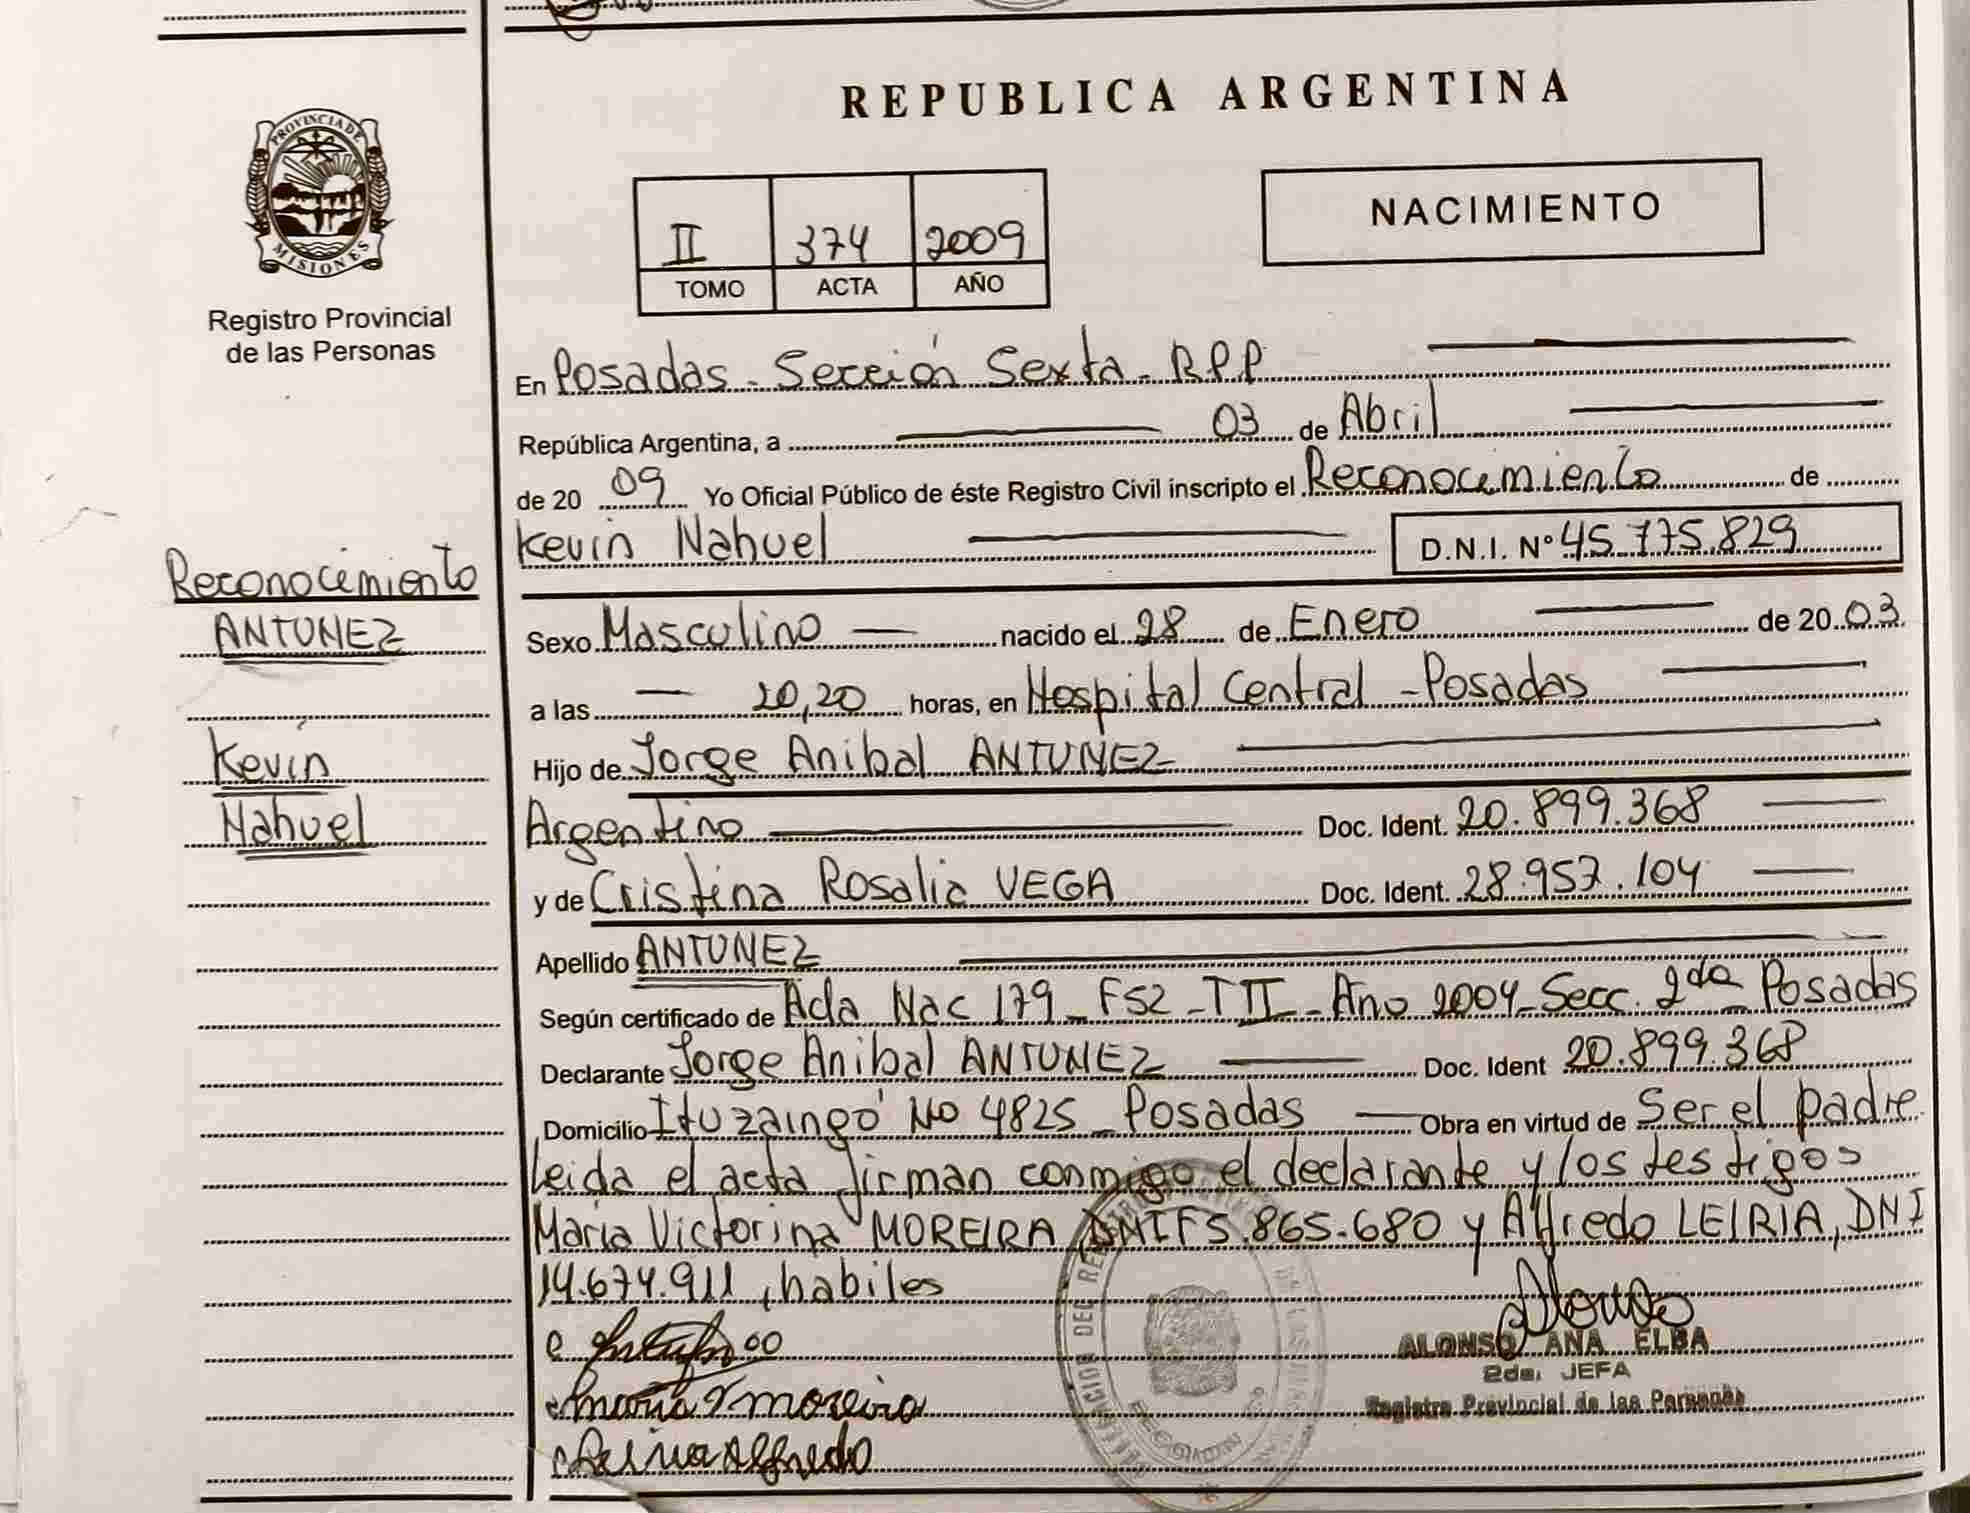 REPUBLICA ARGENTINA
PROVINCIA DE
MISIONES
Registro Provincial
de las Personas
II 374 2009
TOMO ACTA AÑO
NACIMIENTO
En Posadas - Sección Sexta - RPP
República Argentina, a 03 de Abril
de 20 09 Yo Oficial Público de éste Registro Civil inscripto el Reconocimiento de
Kevin Nahuel D.N.I. Nº 45.775.829
Reconocimiento
ANTUNEZ
Kevin
Nahuel
Sexo Masculino — nacido el 28 de Enero de 20 03
a las — 20,20 horas, en Hospital Central - Posadas
Hijo de Jorge Anibal ANTUNEZ
Argentino Doc. Ident. 20.899.368
y de Cristina Rosalia VEGA Doc. Ident. 28.957.104
Apellido ANTUNEZ
Según certificado de Acta Nac 179 - F52 - T II - Año 2004 - Secc. 2da - Posadas
Declarante Jorge Anibal ANTUNEZ Doc. Ident 20.899.368
Domicilio Ituzaingó No 4825 - Posadas — Obra en virtud de Ser el padre
leida el acta firman conmigo el declarante y los testigos
Maria Victorina MOREIRA, DNI F5.865.680 y Alfredo LEIRIA, DNI
14.674.911, habiles
ALONSO ANA ELBA
2da. JEFA
Registro Provincial de las Personas
maria V moreira
Leiria Alfredo